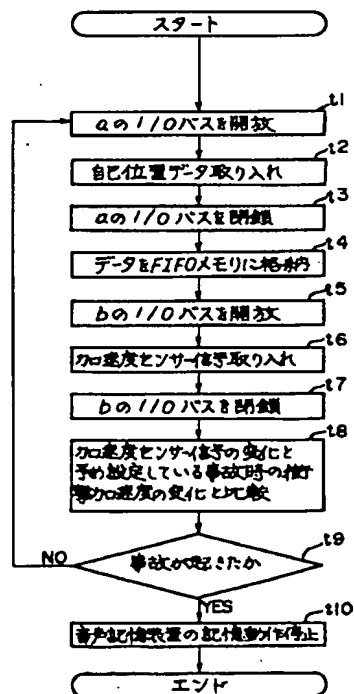 スタート
t1
aのI/Oバスを開放
t2
自己位置データ取り入れ
t3
aのI/Oバスを閉鎖
t4
データをFIFOメモリに格納
t5
bのI/Oバスを開放
t6
加速度センサー信号取り入れ
t7
bのI/Oバスを閉鎖
t8
加速度センサー信号の変化と
予め設定している事故時の衝
撃加速度の変化と比較
t9
事故が起きたか
NO
YES
t10
音声記憶装置の記憶動作停止
エンド